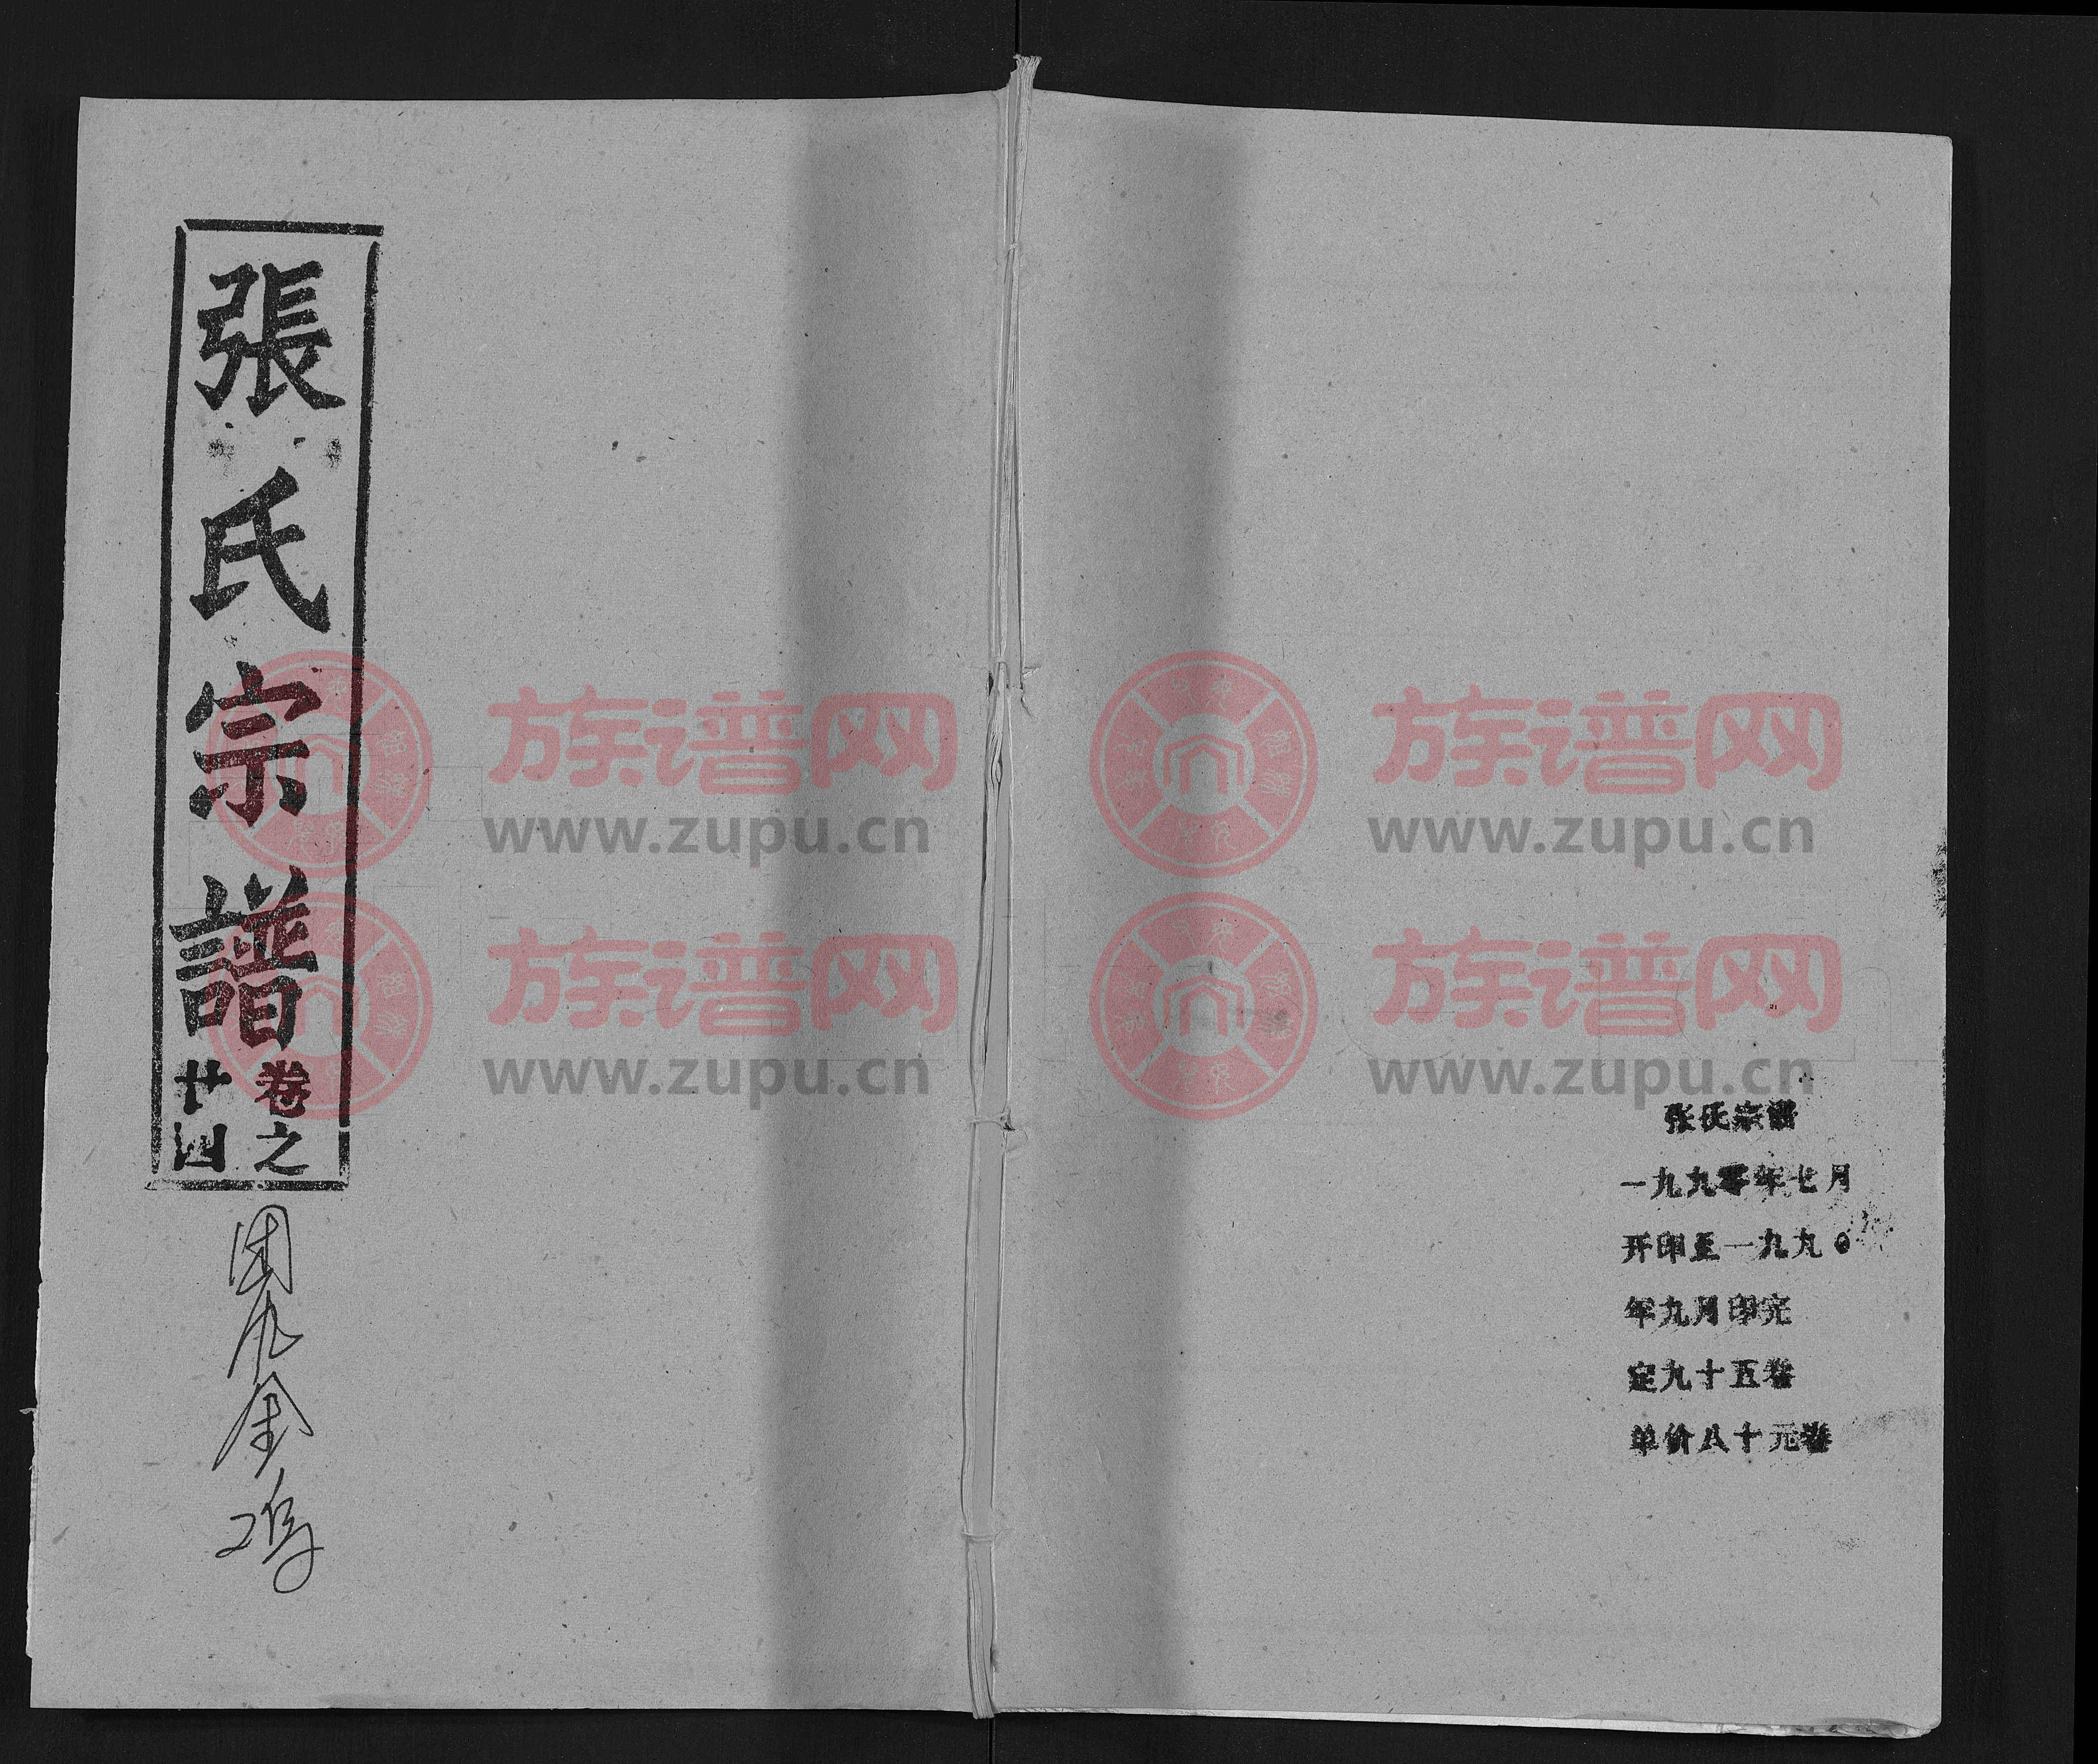 張氏宗譜
卷之
廿四
张氏宗谱
一九九零年七月
开印至一九九〇
年九月印完
定九十五卷
单价八十元卷
族谱网
www.zupu.cn
族谱网
www.zupu.cn
族谱网
www.zupu.cn
族谱网
www.zupu.cn